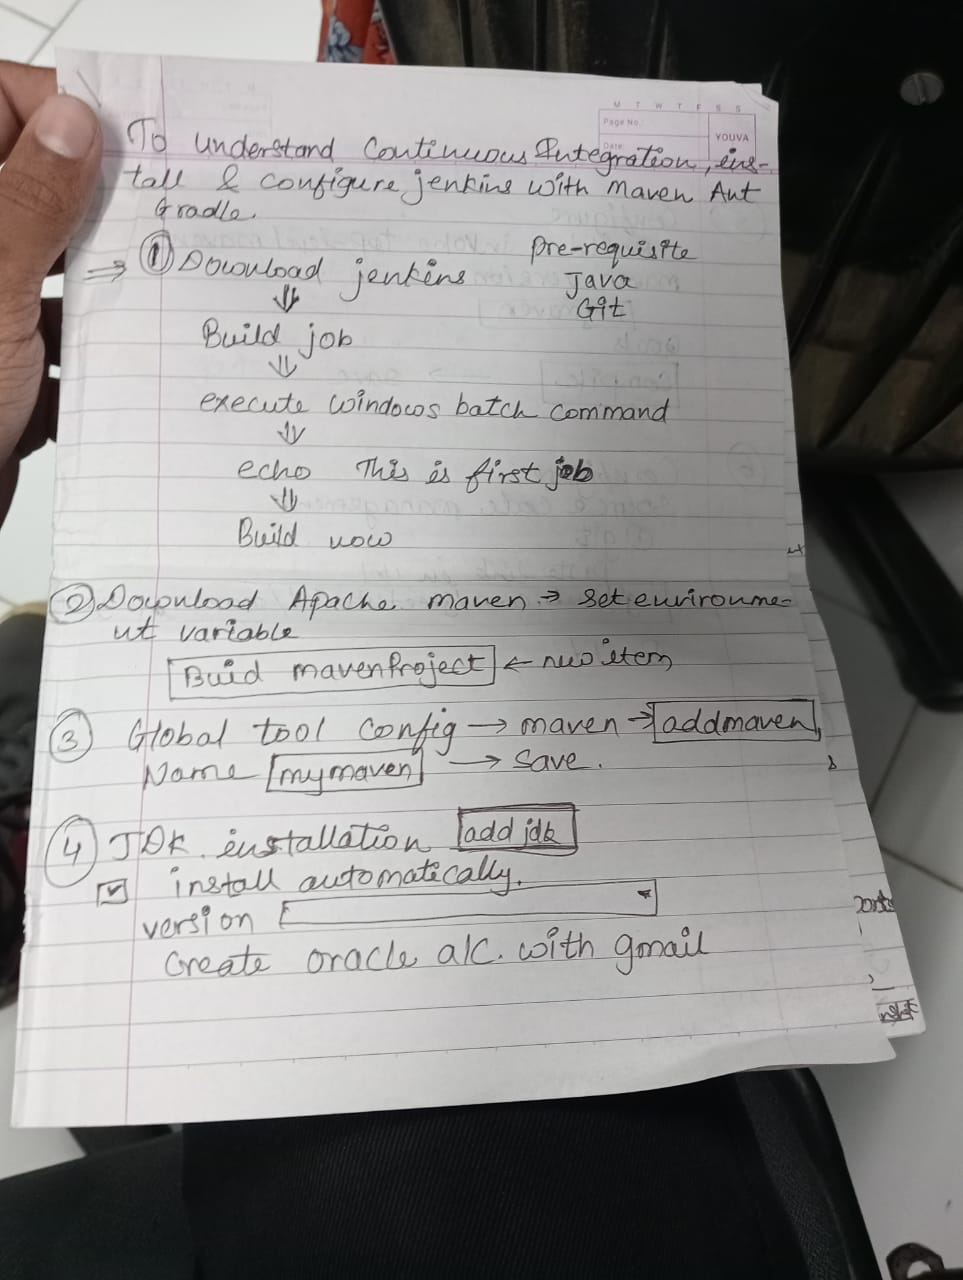 M T W T F S S
Page No.:
Date:
YOUVA
To understand Continuous Integration, ins-
tall & configure jenkins with maven Ant
Gradle.
Pre-requisite
⇒ ① Download jenkins Java
⇓ Git
Build job
⇓
execute windows batch command
⇓
echo This is first job
⇓
Build now
② Download Apache maven → set environme-
nt variable
Buid mavenProject ← new item
③ Global tool Config → maven → addmaven
Name mymaven → Save.
④ JDK installation add jdk
☑ install automatically.
version
Create oracle a/c. with gmail